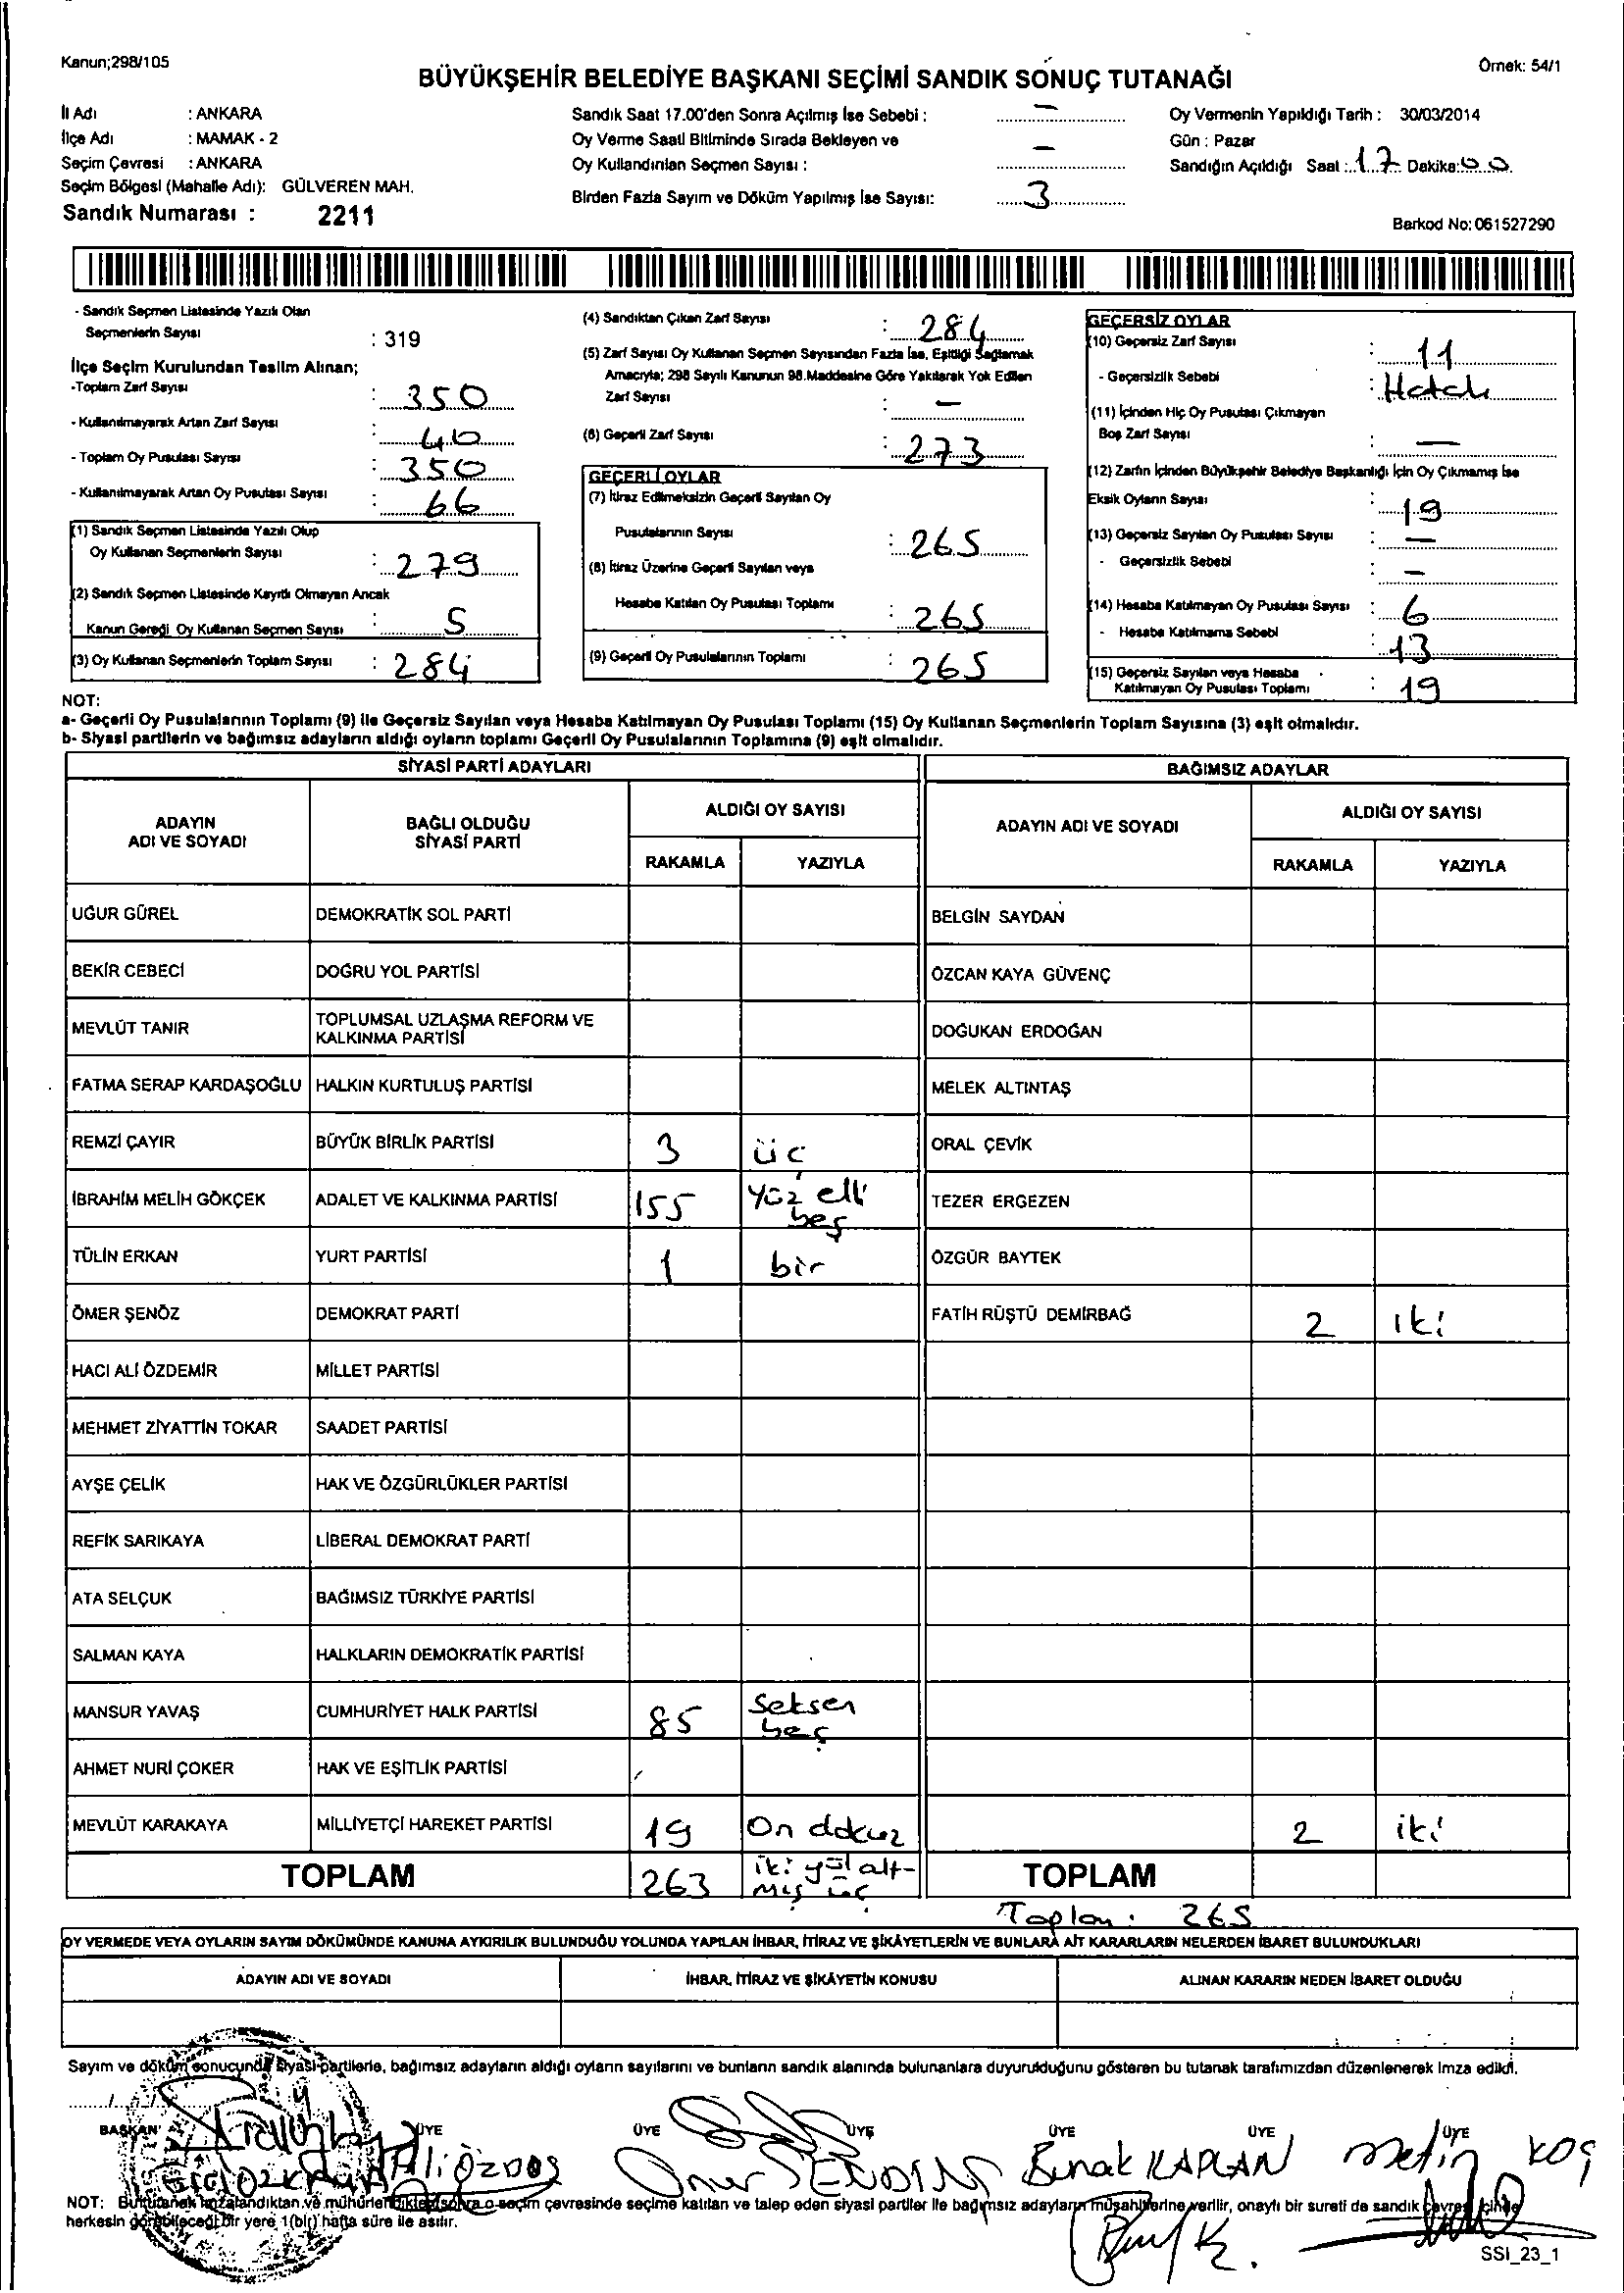 Kanun;298/105
Örnek: 54/1
BÜYÜKŞEHİR BELEDİYE BAŞKANI SEÇİMİ SANDIK SONUÇ TUTANAĞI
İl Adı : ANKARA
İlçe Adı : MAMAK - 2
Seçim Çevresi : ANKARA
Seçim Bölgesi (Mahalle Adı): GÜLVEREN MAH.
Sandık Numarası : 2211
Sandık Saat 17.00'den Sonra Açılmış İse Sebebi : –
Oy Verme Saati Bitiminde Sırada Bekleyen ve
Oy Kullandırılan Seçmen Sayısı : –
Birden Fazla Sayım ve Döküm Yapılmış İse Sayısı: 3
Oy Vermenin Yapıldığı Tarih : 30/03/2014
Gün : Pazar
Sandığın Açıldığı Saat : 17 Dakika: 00
Barkod No: 061527290
- Sandık Seçmen Listesinde Yazılı Olan
Seçmenlerin Sayısı : 319
İlçe Seçim Kurulundan Teslim Alınan;
-Toplam Zarf Sayısı : 350
- Kullanılmayarak Artan Zarf Sayısı :
- Toplam Oy Pusulası Sayısı : 350
- Kullanılmayarak Artan Oy Pusulası Sayısı : 66
(1) Sandık Seçmen Listesinde Yazılı Olup
Oy Kullanan Seçmenlerin Sayısı : 279
(2) Sandık Seçmen Listesinde Kayıtlı Olmayan Ancak
Kanun Gereği Oy Kullanan Seçmen Sayısı : 5
(3) Oy Kullanan Seçmenlerin Toplam Sayısı : 284
(4) Sandıktan Çıkan Zarf Sayısı : 284
(5) Zarf Sayısı Oy Kullanan Seçmen Sayısından Fazla İse, Eşitliği Sağlamak
Amacıyla; 298 Sayılı Kanunun 98.Maddesine Göre Yakılarak Yok Edilen
Zarf Sayısı : –
(6) Geçerli Zarf Sayısı : 273
GEÇERLİ OYLAR
(7) İtiraz Edilmeksizin Geçerli Sayılan Oy
Pusulalarının Sayısı : 265
(8) İtiraz Üzerine Geçerli Sayılan veya
Hesaba Katılan Oy Pusulası Toplamı : 265
(9) Geçerli Oy Pusulalarının Toplamı : 265
GEÇERSİZ OYLAR
(10) Geçersiz Zarf Sayısı : 11
- Geçersizlik Sebebi : Hatalı
(11) İçinden Hiç Oy Pusulası Çıkmayan
Boş Zarf Sayısı : –
(12) Zarfın İçinden Büyükşehir Belediye Başkanlığı İçin Oy Çıkmamış İse
Eksik Oyların Sayısı : 19
(13) Geçersiz Sayılan Oy Pusulası Sayısı : –
- Geçersizlik Sebebi : –
(14) Hesaba Katılmayan Oy Pusulası Sayısı : 6
- Hesaba Katılmama Sebebi : 13
(15) Geçersiz Sayılan veya Hesaba
Katılmayan Oy Pusulası Toplamı : 19
NOT:
a- Geçerli Oy Pusulalarının Toplamı (9) ile Geçersiz Sayılan veya Hesaba Katılmayan Oy Pusulası Toplamı (15) Oy Kullanan Seçmenlerin Toplam Sayısına (3) eşit olmalıdır.
b- Siyasi partilerin ve bağımsız adayların aldığı oyların toplamı Geçerli Oy Pusulalarının Toplamına (9) eşit olmalıdır.
SİYASİ PARTİ ADAYLARI
ADAYIN ADI VE SOYADI
BAĞLI OLDUĞU SİYASİ PARTİ
ALDIĞI OY SAYISI
RAKAMLA YAZIYLA
UĞUR GÜREL DEMOKRATİK SOL PARTİ
BEKİR CEBECİ DOĞRU YOL PARTİSİ
MEVLÜT TANIR TOPLUMSAL UZLAŞMA REFORM VE KALKINMA PARTİSİ
FATMA SERAP KARDAŞOĞLU HALKIN KURTULUŞ PARTİSİ
REMZİ ÇAYIR BÜYÜK BİRLİK PARTİSİ 3 üç
İBRAHİM MELİH GÖKÇEK ADALET VE KALKINMA PARTİSİ 155 yüz elli beş
TÜLİN ERKAN YURT PARTİSİ 1 bir
ÖMER ŞENÖZ DEMOKRAT PARTİ
HACI ALİ ÖZDEMİR MİLLET PARTİSİ
MEHMET ZİYATTİN TOKAR SAADET PARTİSİ
AYŞE ÇELİK HAK VE ÖZGÜRLÜKLER PARTİSİ
REFİK SARIKAYA LİBERAL DEMOKRAT PARTİ
ATA SELÇUK BAĞIMSIZ TÜRKİYE PARTİSİ
SALMAN KAYA HALKLARIN DEMOKRATİK PARTİSİ
MANSUR YAVAŞ CUMHURİYET HALK PARTİSİ 85 Seksen beş
AHMET NURİ ÇOKER HAK VE EŞİTLİK PARTİSİ
MEVLÜT KARAKAYA MİLLİYETÇİ HAREKET PARTİSİ 19 On dokuz
TOPLAM 263 iki yüz alt-mış üç
BAĞIMSIZ ADAYLAR
ADAYIN ADI VE SOYADI
ALDIĞI OY SAYISI
RAKAMLA YAZIYLA
BELGİN SAYDAN
ÖZCAN KAYA GÜVENÇ
DOĞUKAN ERDOĞAN
MELEK ALTINTAŞ
ORAL ÇEVİK
TEZER ERGEZEN
ÖZGÜR BAYTEK
FATİH RÜŞTÜ DEMİRBAĞ 2 iki
2 iki
TOPLAM
Toplam : 265
OY VERMEDE VEYA OYLARIN SAYIM DÖKÜMÜNDE KANUNA AYKIRILIK BULUNDUĞU YOLUNDA YAPILAN İHBAR, İTİRAZ VE ŞİKÂYETLERİN VE BUNLARA AİT KARARLARIN NELERDEN İBARET BULUNDUKLARI
ADAYIN ADI VE SOYADI İHBAR, İTİRAZ VE ŞİKÂYETİN KONUSU ALINAN KARARIN NEDEN İBARET OLDUĞU
Sayım ve döküm sonucunda siyasi partilerle, bağımsız adayların aldığı oyların sayılarını ve bunların sandık alanında bulunanlara duyurulduğunu gösteren bu tutanak tarafımızdan düzenlenerek imza edildi.
BAŞKAN ÜYE ÜYE ÜYE ÜYE ÜYE ÜYE
Ali Özdoş Öner ŞENDİNÇ Burak KAPLAN Metin KOÇ
NOT: Bu tutanak imzalandıktan ve mühürlendikten sonra o seçim çevresinde seçime katılan ve talep eden siyasi partiler ile bağımsız adayların müşahitlerine verilir, onaylı bir sureti de sandık çevresi içinde
herkesin görebileceği bir yere 1(bir) hafta süre ile asılır.
SSI_23_1